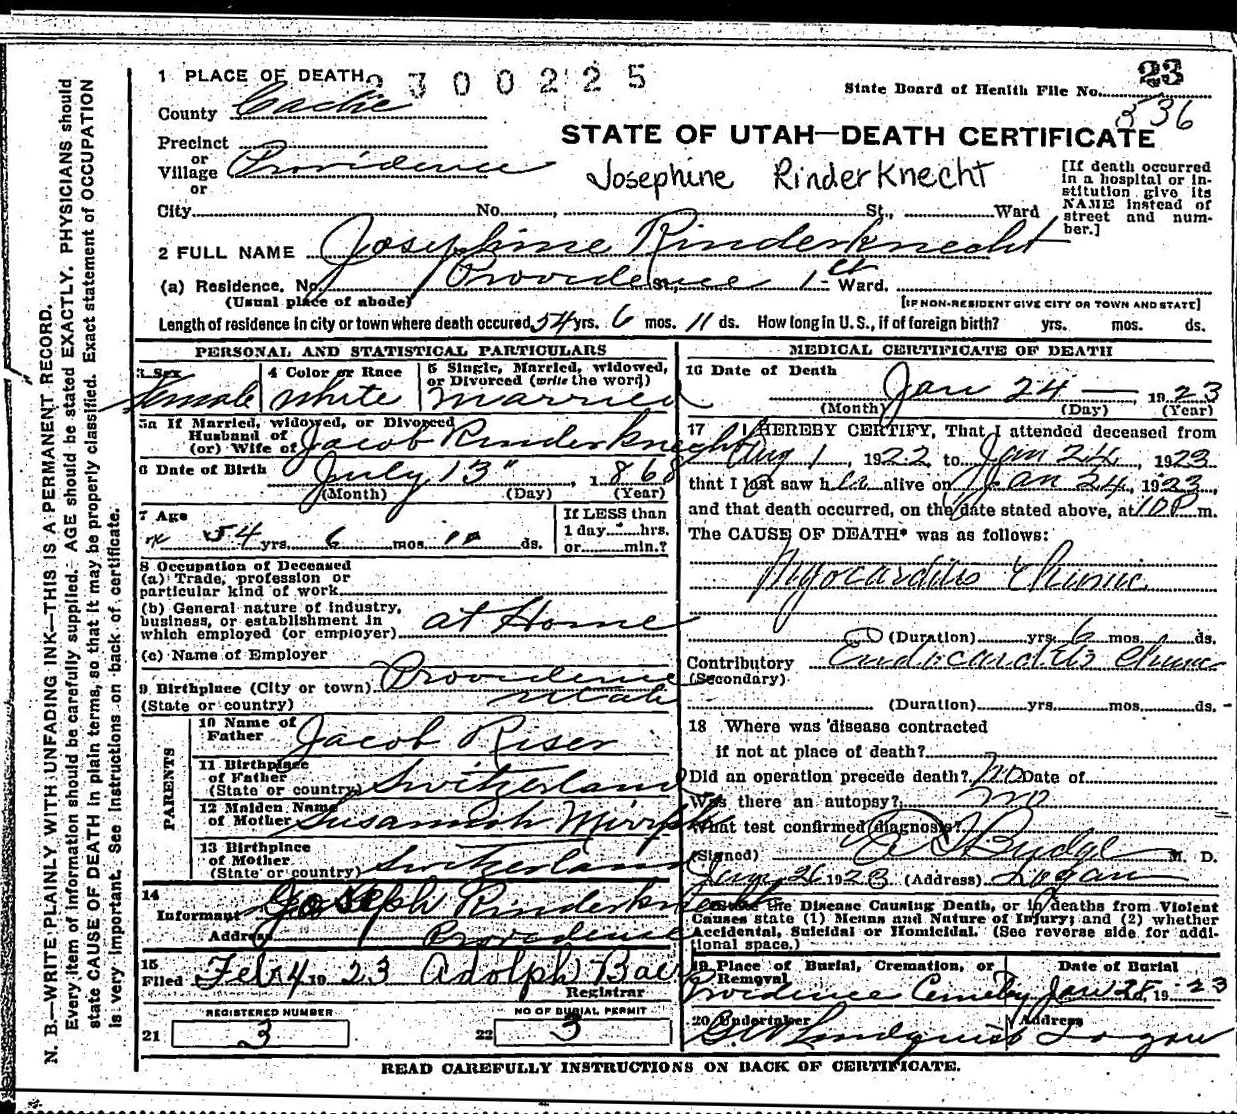 1 PLACE OF DEATH 2300225
23
State Board of Health File No.
536
County Cache
STATE OF UTAH—DEATH CERTIFICATE
Precinct
or
Village Providence
or
Josephine RinderKnecht
[If death occurred in a hospital or institution give its NAME instead of street and number.]
City No. , St., Ward
2 FULL NAME Josephine Rinderknecht
(a) Residence, No. Providence St., 1st Ward.
(Usual place of abode)
[IF NON-RESIDENT GIVE CITY OR TOWN AND STATE]
Length of residence in city or town where death occured 54 yrs. 6 mos. 11 ds. How long in U. S., if of foreign birth? yrs. mos. ds.
PERSONAL AND STATISTICAL PARTICULARS
3 Sex 4 Color or Race 5 Single, Married, widowed,
or Divorced (write the word)
Female white married
5a If Married, widowed, or Divorced
Husband of
(or) Wife of Jacob Rinderknecht
6 Date of Birth July 13 , 1868
(Month) (Day) (Year)
7 Age If LESS than
54 yrs. 6 mos. ds. 1 day hrs.
or min.?
8 Occupation of Deceased
(a) Trade, profession or
particular kind of work
(b) General nature of industry,
business, or establishment in
which employed (or employer) at Home
(c) Name of Employer
9 Birthplace (City or town) Providence
(State or country) Utah
PARENTS
10 Name of
Father Jacob Riser
11 Birthplace
of Father
(State or country) Switzerland
12 Maiden Name
of Mother Susannah
13 Birthplace
of Mother
(State or country) Switzerland
14
Informant Joseph Rinderknecht
Address Providence
15
Filed Feb 4 19 23 Adolph Baer
Registrar
REGISTERED NUMBER NO OF BURIAL PERMIT
21 3 22 3
MEDICAL CERTIFICATE OF DEATH
16 Date of Death
Jan 24 1923
(Month) (Day) (Year)
17 I HEREBY CERTIFY, That I attended deceased from
Aug 1, 1922, to Jan 24, 1923
that I last saw her alive on Jan 24, 1923,
and that death occurred, on the date stated above, at 10 P m.
The CAUSE OF DEATH* was as follows:
Myocarditis Chronic
(Duration) yrs. 6 mos. ds.
Contributory Endocarditis Chronic
(Secondary)
(Duration) yrs. mos. ds.
18 Where was disease contracted
if not at place of death?
Did an operation precede death? no Date of
Was there an autopsy? no
What test confirmed diagnosis?
(Signed) Budge M. D.
Jan 26 1923 (Address) Logan
*State the Disease Causing Death, or in deaths from Violent
Causes state (1) Means and Nature of Injury; and (2) whether
Accidental, Suicidal or Homicidal. (See reverse side for addi-
tional space.)
19 Place of Burial, Cremation, or Date of Burial
Removal
Providence Cemetery Jan 28 1923
20 Undertaker Address
Lindquist Logan
READ CAREFULLY INSTRUCTIONS ON BACK OF CERTIFICATE.
N. B.—WRITE PLAINLY WITH UNFADING INK—THIS IS A PERMANENT RECORD.
Every item of information should be carefully supplied. AGE should be stated EXACTLY. PHYSICIANS should
state CAUSE OF DEATH in plain terms, so that it may be properly classified. Exact statement of OCCUPATION
is very important. See instructions on back of certificate.